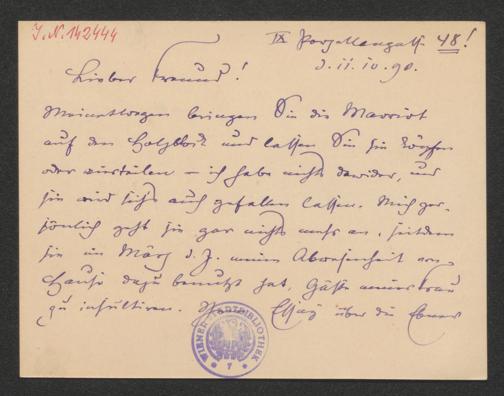 I.N. 142444
IX Porzellangasse 48!
d. 11. 10. 90.
Lieber Freund!
Meinetwegen bringen Sie die Marriot
auf den Holzblock und lassen Sie sie köpfen
oder viertheilen – ich habe nichts dawider, und
sie wird sich's auch gefallen lassen. Mich per-
sönlich geht sie gar nichts mehr an, seitdem
sie im März d. J. meine Abwesenheit von
Hause dazu benutzt hat, Gäste meiner Frau
zu insultiren. Essay über die Ebner
WIENER STADTBIBLIOTHEK